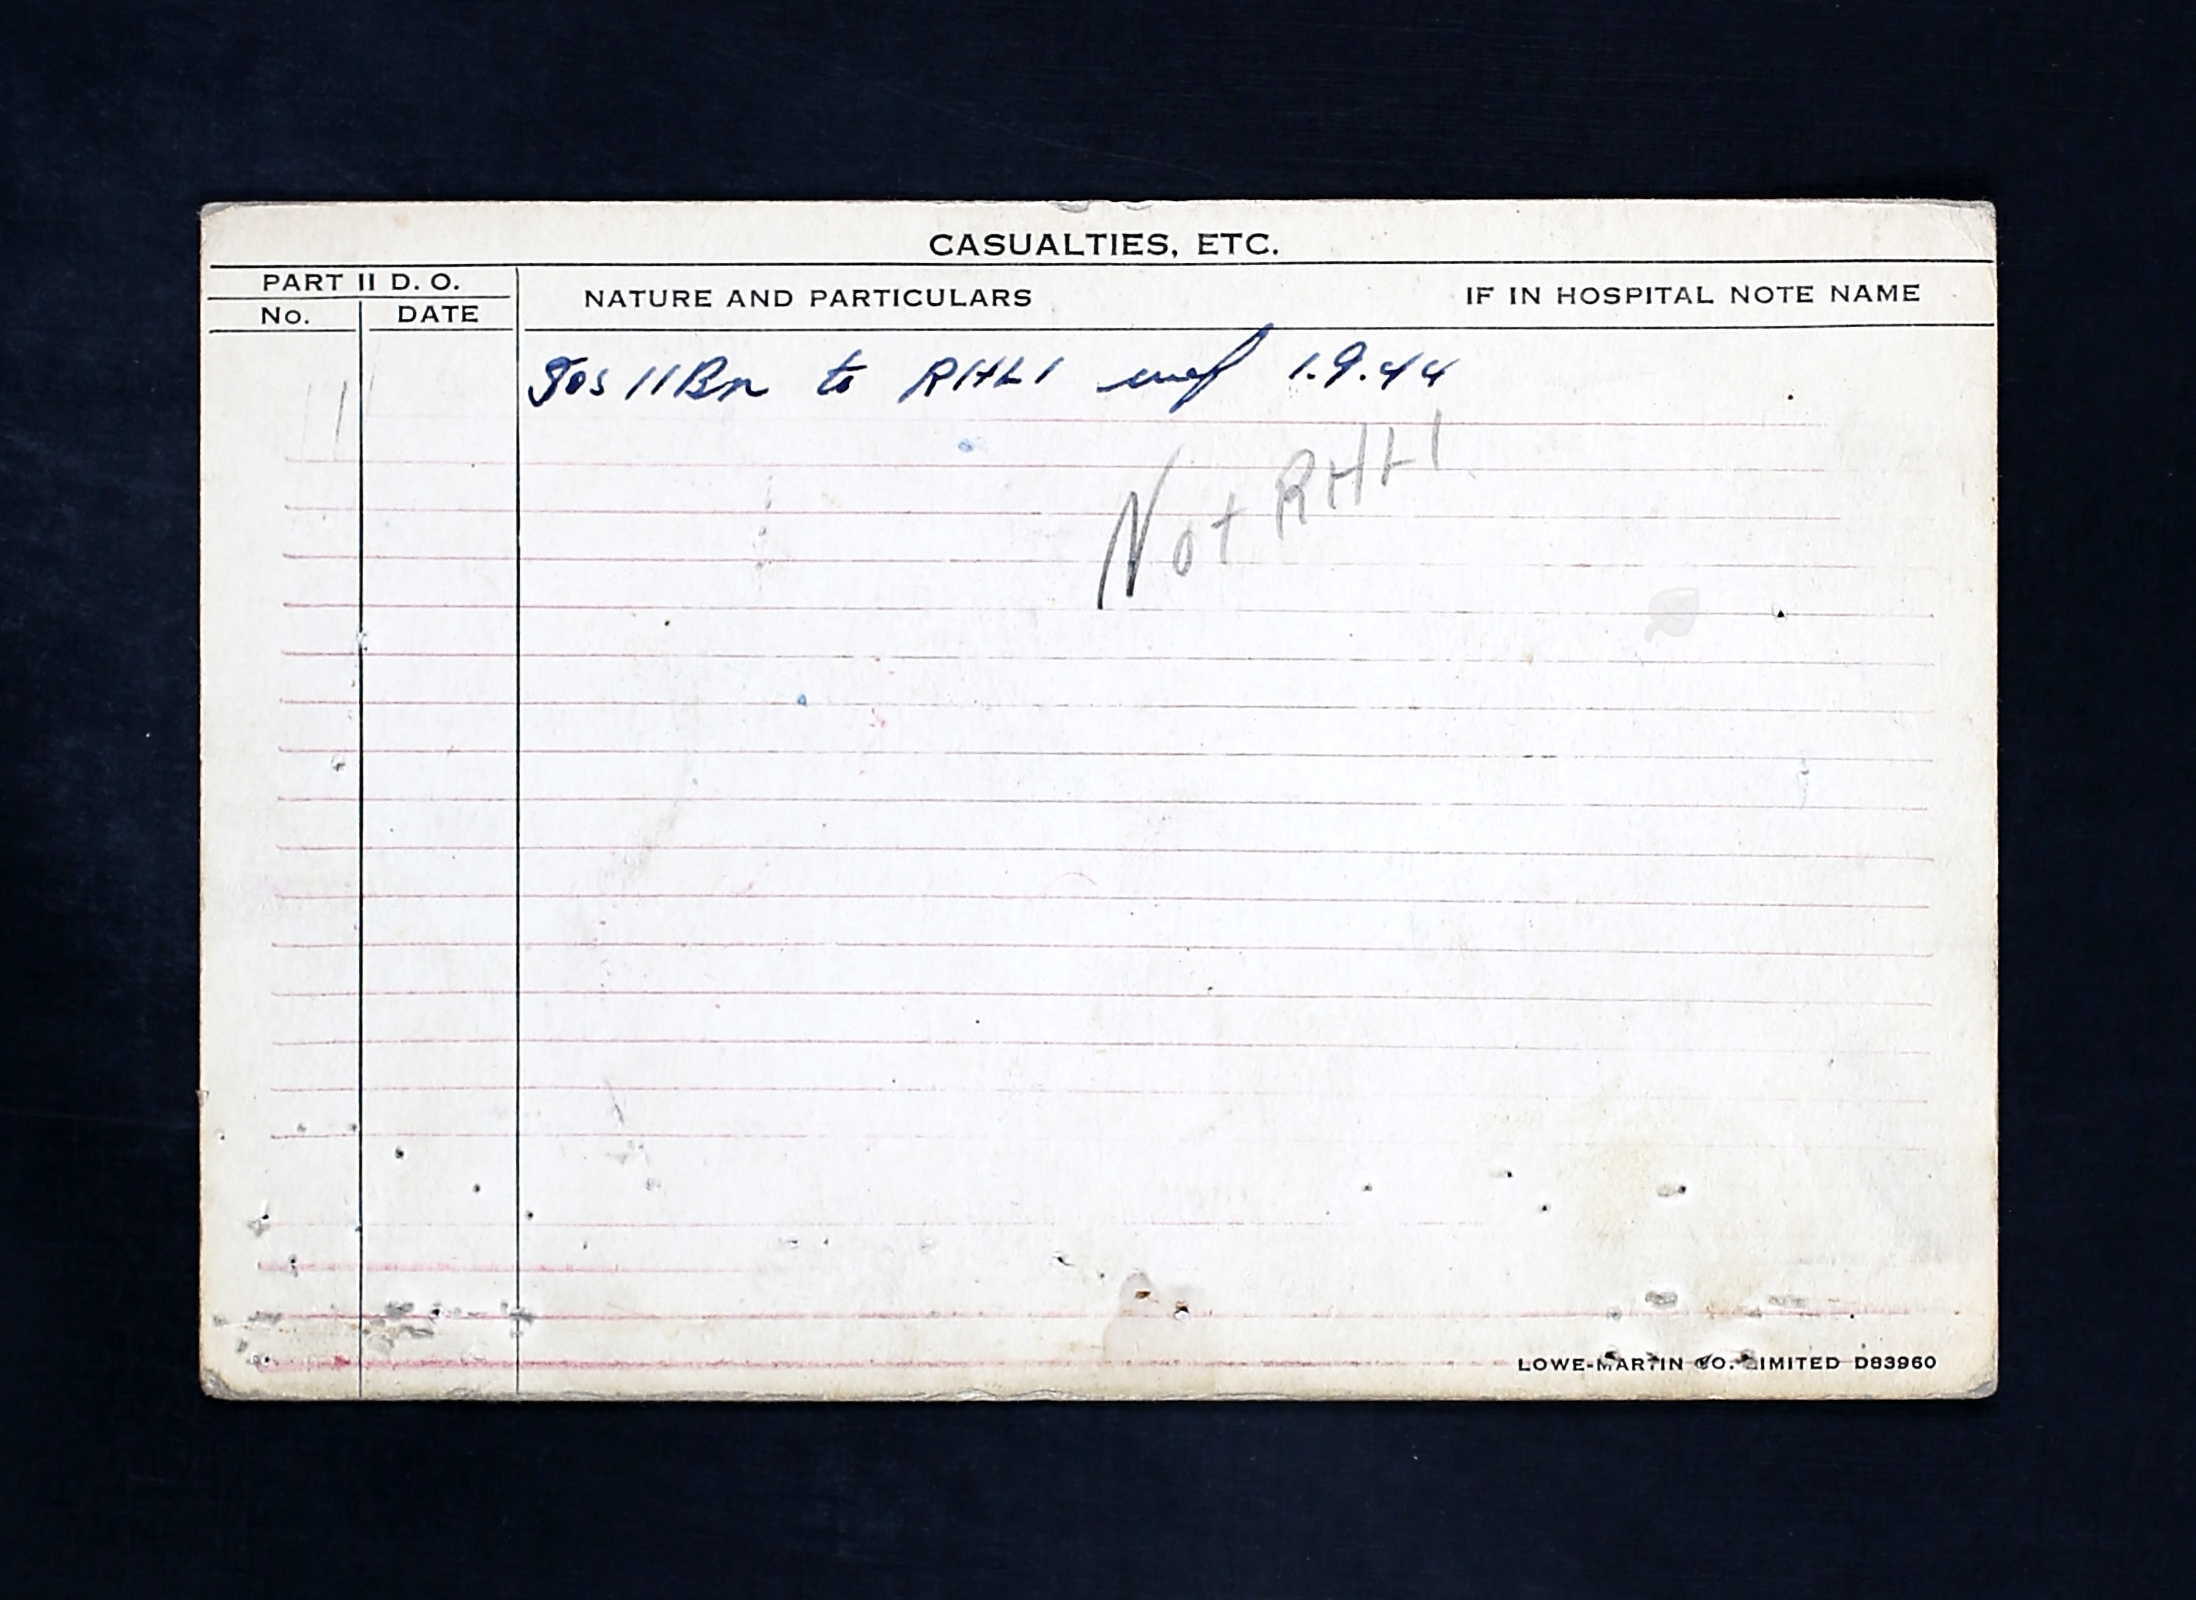 CASUALTIES, ETC.
PART II D. O.
No. DATE NATURE AND PARTICULARS IF IN HOSPITAL NOTE NAME
Tos 11Bn to RHLI wef 1.9.44
Not RHLI
LOWE-MARTIN CO. LIMITED D83960